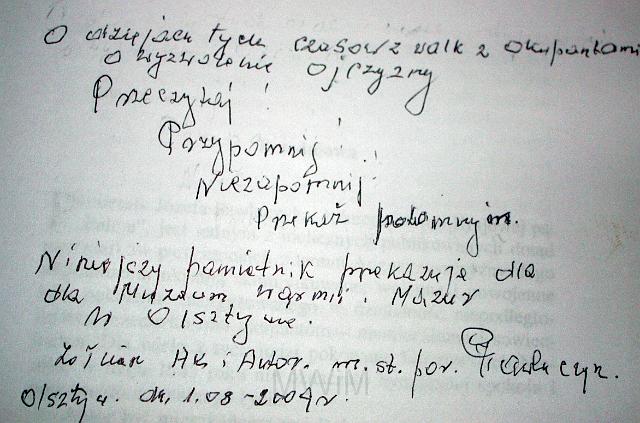 O dziejach tych czasów z walk z okupantami
o wyzwolenie ojczyzny
Przeczytaj!
Przypomnij!
Niezapomnij!
Przekaż potomnym.
Niniejszy pamiętnik przekazuje dla
dla Muzeum Warmii i Mazur
w Olsztynie.
Żołnierz AK i Autor. m. st. por.
Olsztyn. dn. 1.08-2004 r.
MWiM